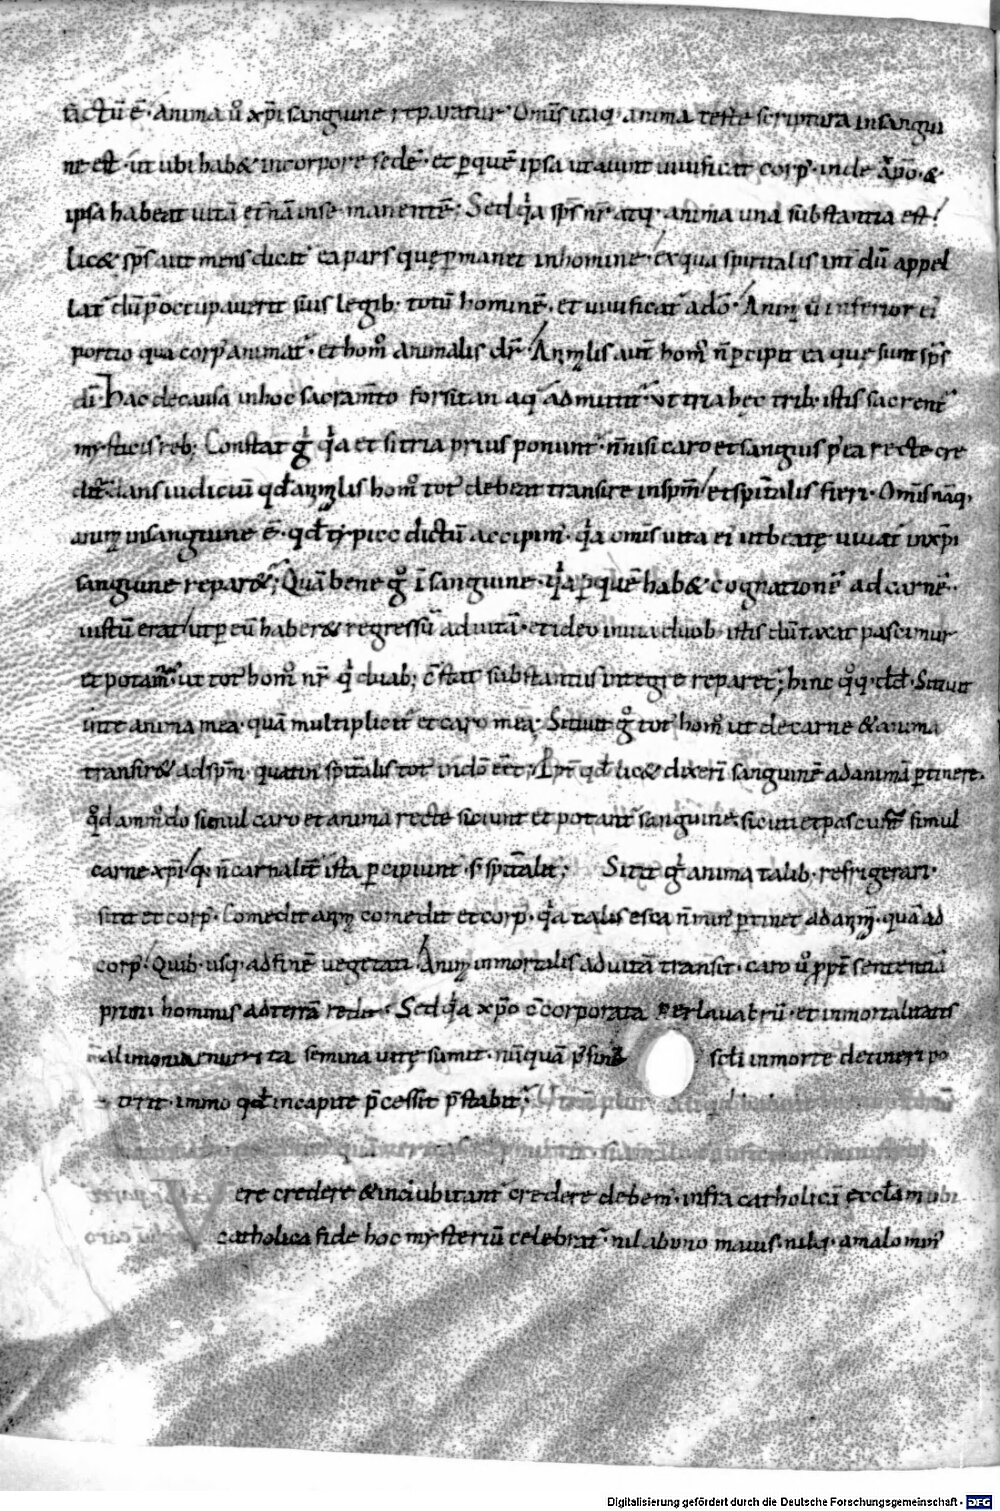 factū ē. Anima ů xp̄i sanguine reparatur. Omīs itaq; anima teste scriptura in sangui
ne est. ut ubi hab& in corpore sedē. et p quē ipsa ut aiunt uiuificat corp᾽. inde xp̄o &
ipsa habeat uitā et in se manentē; Sed q̇a sp̄s nr̄ atq; anima una substantia est.
lic& sp̄s aut mens dicat᾽ ea pars quę p manet in homine. ex qua spiritalis int dū appel
lat᾽ cū p̄occupauerit suis legib; totū hominē. et uiuificat᾽ a dō. Anim ů inferior ei
portio qua corp᾽ animat᾽. et homo animalis dr̄. Animlis aut homo n̄ pcipit ea quę sunt sp̄s
dī. Hac de causa in hoc sacram̄to forsitan aq᾽ admittit᾽. ut tria hęc trib; istis sacrent᾽
mysticis reb; Constat g̊ q̇a et si tria prius ponunt᾽. n̄ nisi caro et sanguis p ea recte cre
dit᾽. dans iudiciū qd̄ animlis homo tot᾽ debeat transire in sp̄m et sp̄italis fieri. Omīs nāq;
anim in sanguine ē. qd̄ typice dictū accipim᾽. q̇a omīs uita ei ut beatę uiuat in xp̄i
sanguine reparat᾽; Quā bene g̊ ī sanguine. q̇a p quē hab& cognationē ad carnē.
iustū erat ut p eū haber& regressū ad uitā. et ideo in uia duob; istis dūtaxat pascimur
et potam᾽. ut tot᾽ homo nr̄ q̇ duab; c̄stat substantiis integre reparet᾽; hinc q̊q; dd̄. Sitiuit
in te anima mea. quā multiplicit᾽ et caro mea; Sitiuit g̊ tot᾽ homo ut de carne & anima
transir& ad sp̄m. quatin᾽ sp̄italis tot᾽ in dō eēt; Ppt᾽ qd̄ lic& dixerī sanguinē ad animā pertinere.
q̊dāmodo simul caro et anima recte sitiunt et potant᾽ sanguine. sicuti et pascunt᾽ simul
carne xp̄i q; n̄ carnalit᾽ ista pcipiunt. s; sp̄italit᾽; Sitit g̊ anima talib; refrigerari.
sitit et corp᾽. Comedit anim comedit et corp᾽. q̇a talis esca n̄ min᾽ ptinet ad anim. quā ad
corp᾽. Quib; usq; ad finē uegetati. Anim inmortalis ad uitā transit. caro ů ppt᾽ sententiā
primi hominis ad terrā redit. Sed q̇a xp̄o c̄corporata per lauacrū. et inmortalitatis
alimonia enutrita semina uitę sumit. nūquā p sine scl̄i in morte detineri po
terit. immo qd̄ in capite p̄cessit p̄stabit᾽;
Vere credere & indubitant᾽ credere debem᾽. infra catholicā eccl̄am ubi
catholica fide hoc mysteriū celebrat᾽. nil a bono maius. nilq; a malo min᾽
Digitalisierung gefördert durch die Deutsche Forschungsgemeinschaft - DFG